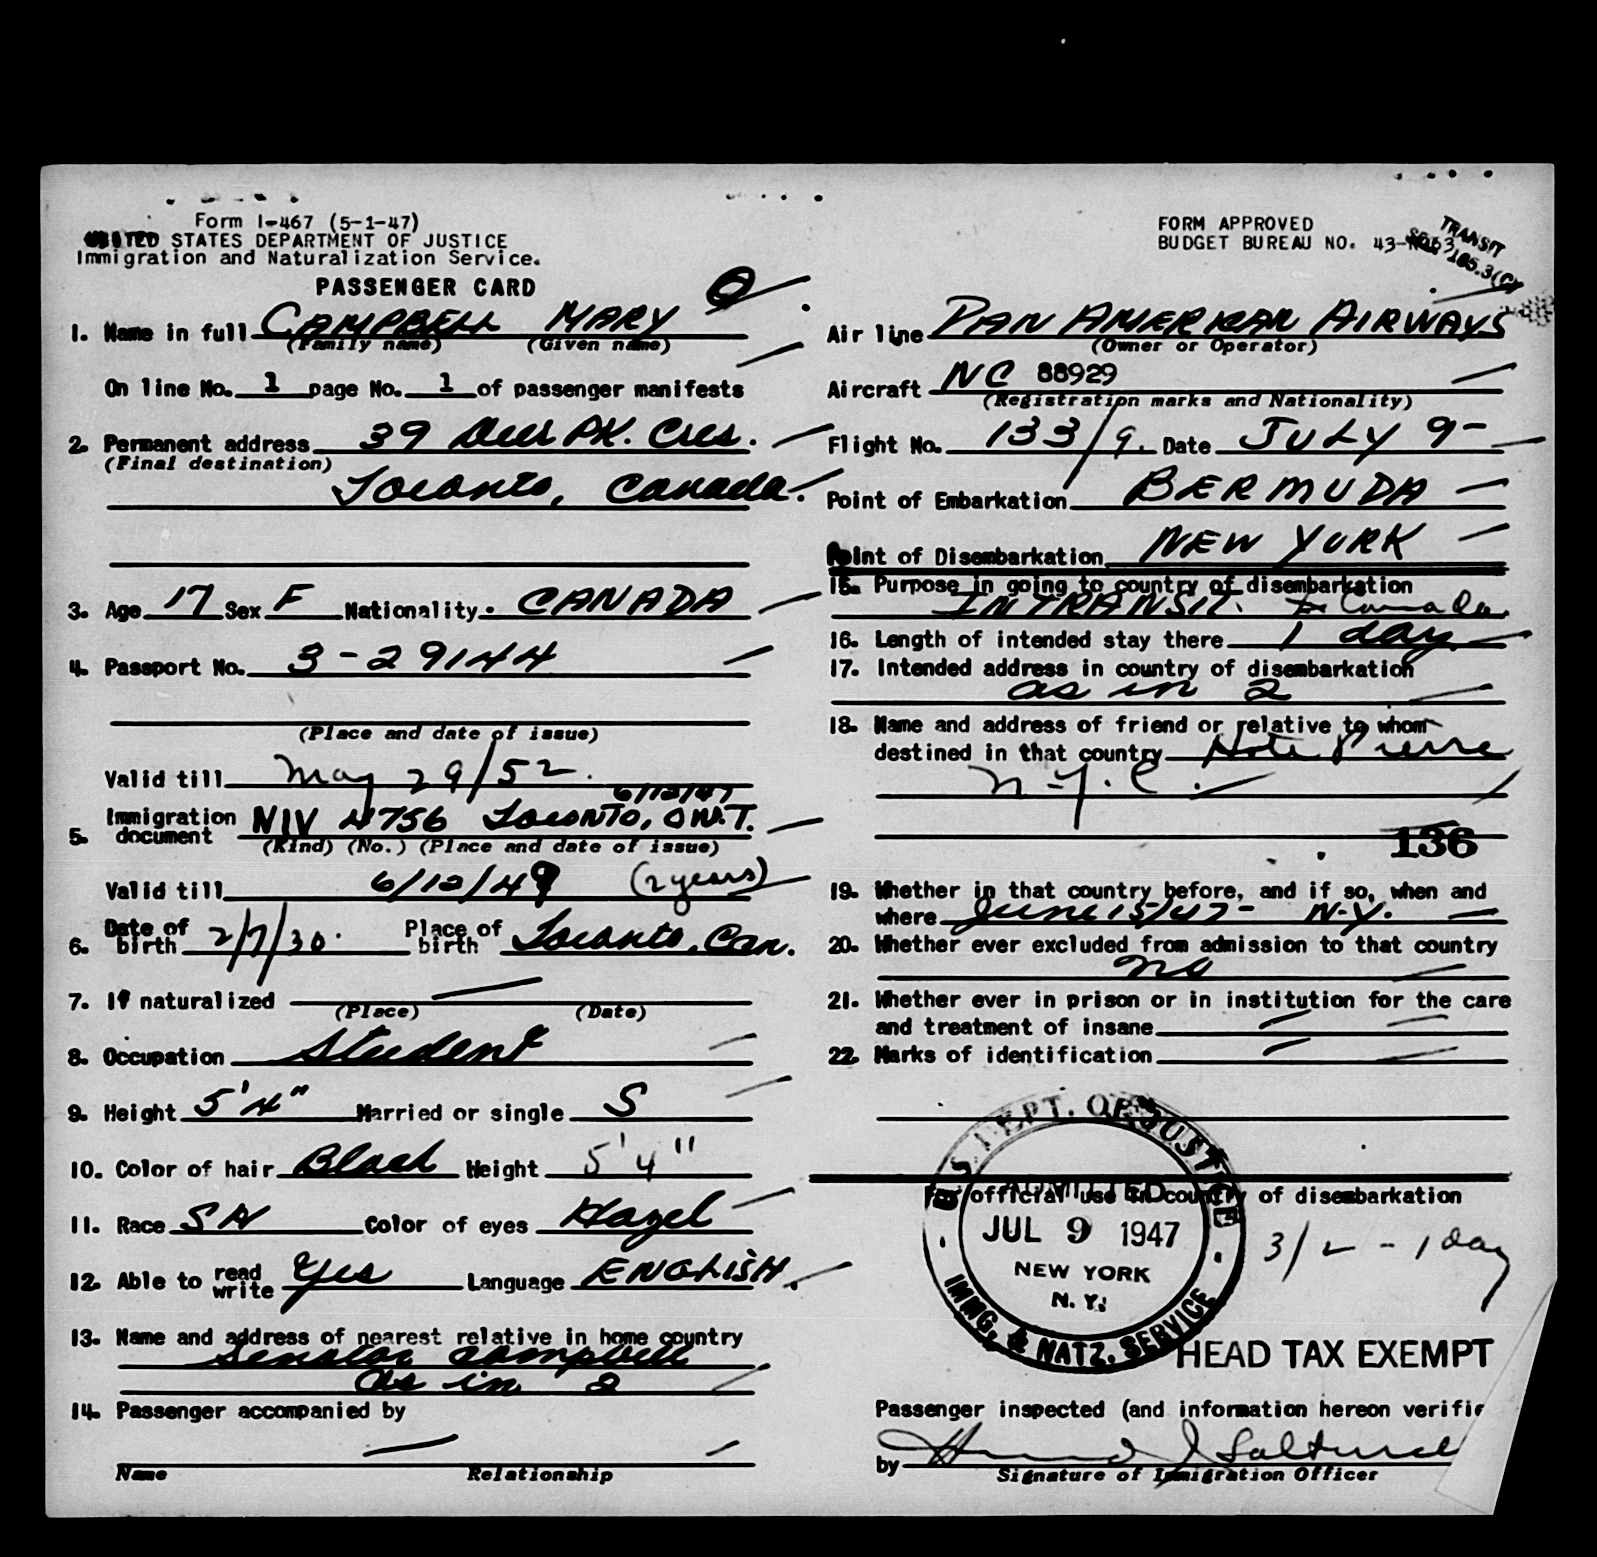 Form I-467 (5-1-47)
UNITED STATES DEPARTMENT OF JUSTICE
Immigration and Naturalization Service.
PASSENGER CARD
1. Name in full CAMPBELL MARY
(Family name) (Given name)
On line No. 1 page No. 1 of passenger manifests
2. Permanent address 39 Deer PK. Cres.
(Final destination)
Toronto, Canada.
3. Age 17 Sex F Nationality CANADA
4. Passport No. 3-29144
(Place and date of issue)
Valid till May 29/52.
6/12/47
5. Immigration document NIV 4756 Toronto, ONT.
(Kind) (No.) (Place and date of issue)
Valid till 6/12/49 (2 years)
6. Date of birth 2/7/30. Place of birth Toronto, Can.
7. If naturalized
(Place) (Date)
8. Occupation Student
9. Height 5'4" Married or single S
10. Color of hair Black Height 5'4"
11. Race Color of eyes Hazel
12. Able to read write Yes Language ENGLISH.
13. Name and address of nearest relative in home country
Senator Campbell
as in 2
14. Passenger accompanied by
Name Relationship
FORM APPROVED
BUDGET BUREAU NO. 43-
TRANSIT
SEC. 165.3(C)
Air line PAN AMERICAN AIRWAYS
(Owner or Operator)
Aircraft NC 88929
(Registration marks and Nationality)
Flight No. 133/9. Date JULY 9-
Point of Embarkation BERMUDA
Point of Disembarkation NEW YORK
15. Purpose in going to country of disembarkation
IN TRANSIT. to Canada
16. Length of intended stay there 1 day
17. Intended address in country of disembarkation
as in 2
18. Name and address of friend or relative to whom
destined in that country Hotel Pierre
N-Y.C.
136
19. Whether in that country before, and if so, when and
where June 15/47- N.Y.
20. Whether ever excluded from admission to that country
no
21. Whether ever in prison or in institution for the care
and treatment of insane
22. Marks of identification
For official use in country of disembarkation
U.S. DEPT. OF JUSTICE
ADMITTED
JUL 9 1947
NEW YORK
N. Y.
IMMG. & NATZ. SERVICE
3/2 - 1 day
HEAD TAX EXEMPT
Passenger inspected (and information hereon verifie
by
Signature of Immigration Officer